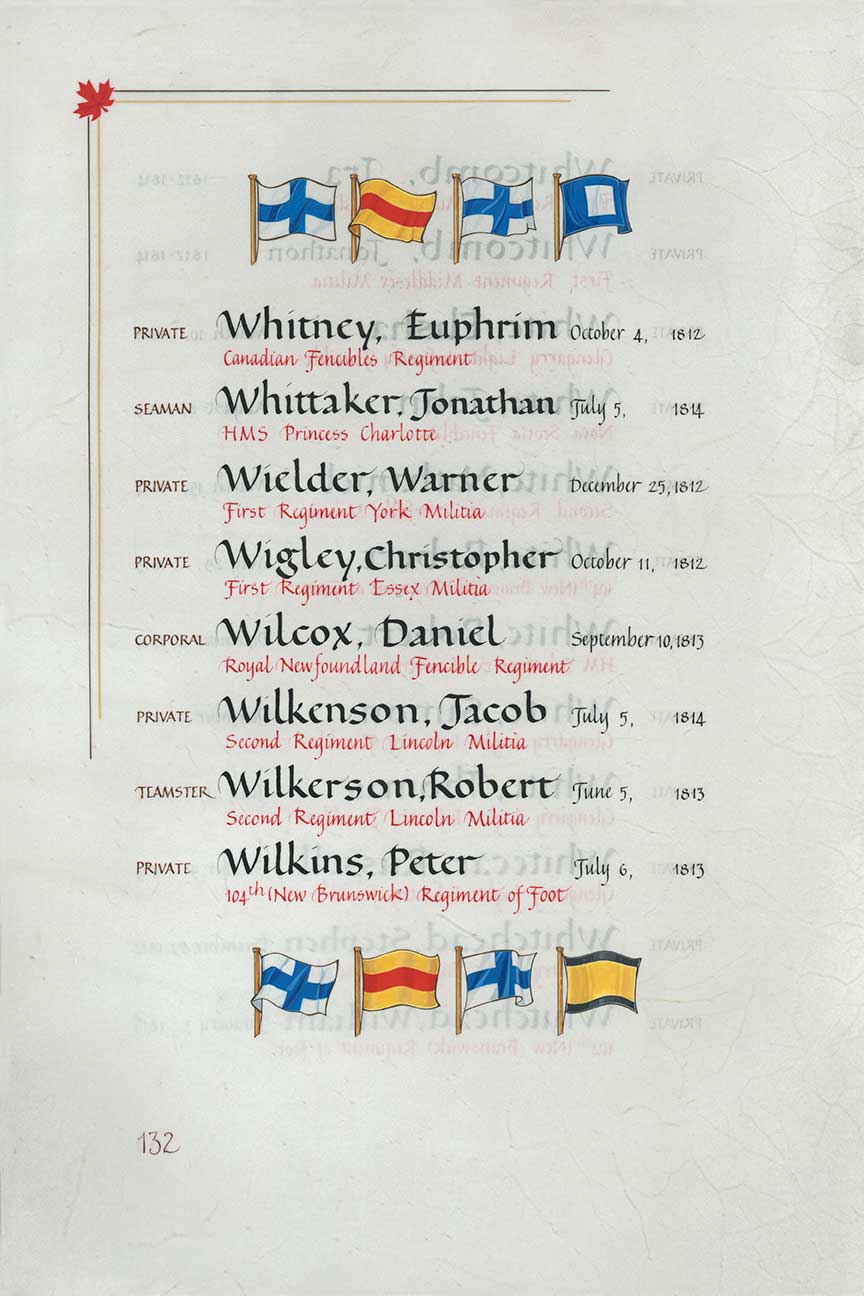 PRIVATE Whitney, Euphrim October 4, 1812
Canadian Fencibles Regiment
SEAMAN Whittaker, Jonathan July 5, 1814
HMS Princess Charlotte
PRIVATE Wielder, Warner December 25, 1812
First Regiment York Militia
PRIVATE Wigley, Christopher October 11, 1812
First Regiment Essex Militia
CORPORAL Wilcox, Daniel September 10, 1813
Royal Newfoundland Fencible Regiment
PRIVATE Wilkenson, Jacob July 5, 1814
Second Regiment Lincoln Militia
TEAMSTER Wilkerson, Robert June 5, 1813
Second Regiment Lincoln Militia
PRIVATE Wilkins, Peter July 6, 1813
104th (New Brunswick) Regiment of Foot
132